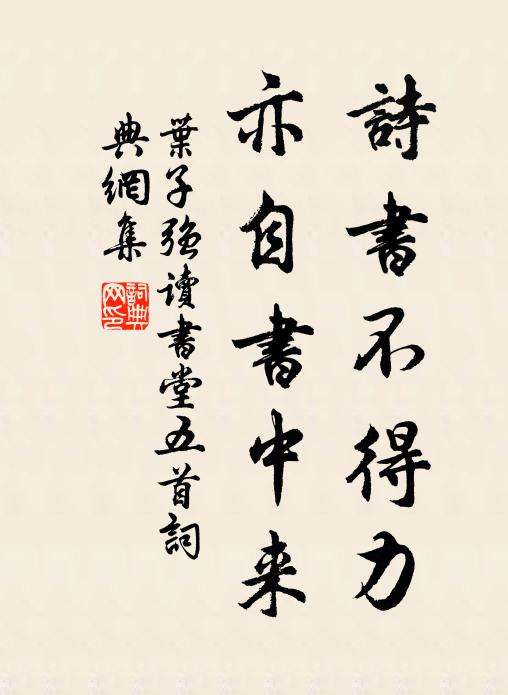 詩書不得力
亦自書中来
葉子强讀書堂五首詞
典網集
詞典
网印